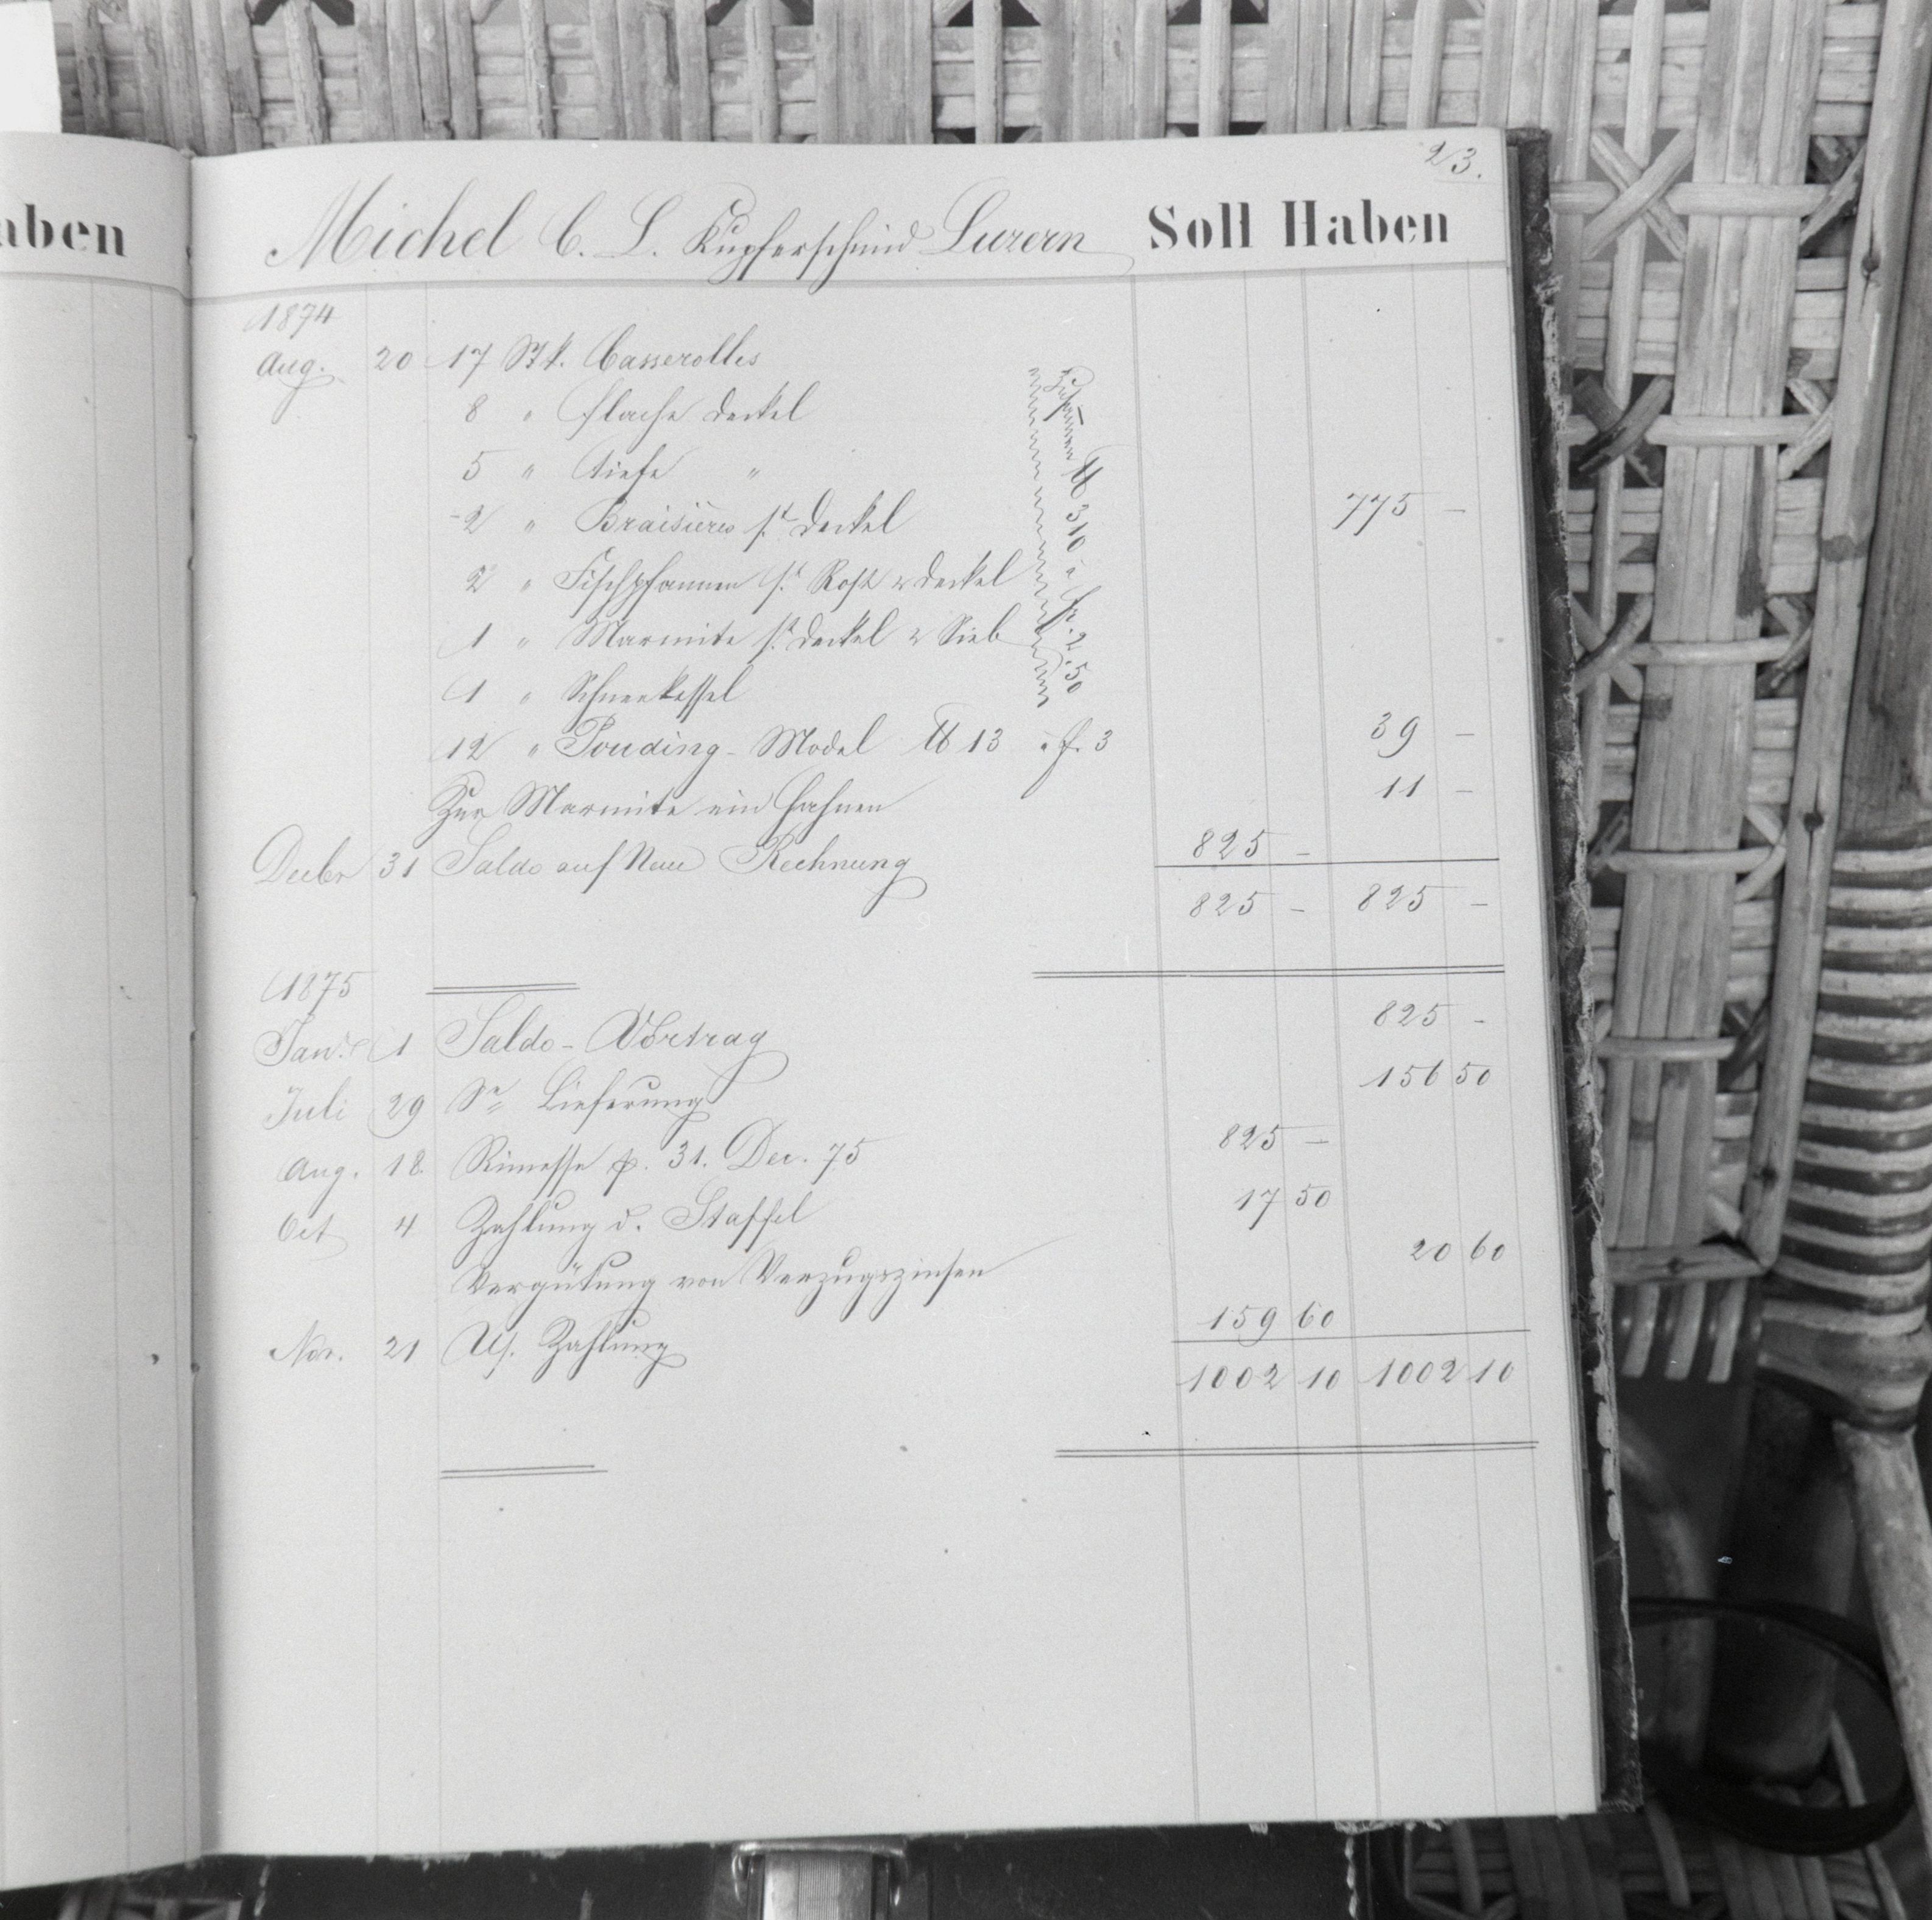 aben
23.
Michel C. L. Kupferschmid Luzern Soll Haben
1874
Aug. 20 17 Stk. Casserolles
8 " flache Deckel
5 " tiefe "
2 " Braisières st. Deckel 775 –
2 " Fischpfannen st. Rost & Deckel
1 " Marmite st. Deckel & Sieb
1 " Schneekessel
Zusammen ℔ 310 à fr. 2.50
12 " Pouding-Model ℔ 13 à f. 3 39 –
Zur Marmite ein Hahnen 11 –
Decbr 31 Saldo auf Neue Rechnung 825 –
825 – 825 –
1875
Jan. 1 Saldo-Vortrag 825 –
Juli 29 Sr Lieferung 156 50
Aug. 18. Rimesse p. 31. Dec. 75 825 –
Oct 4 Zahlung d. Staffel 17 50
Vergütung von Verzugszinsen 20 60
Nov. 21 Us. Zahlung 159 60
1002 10 1002 10